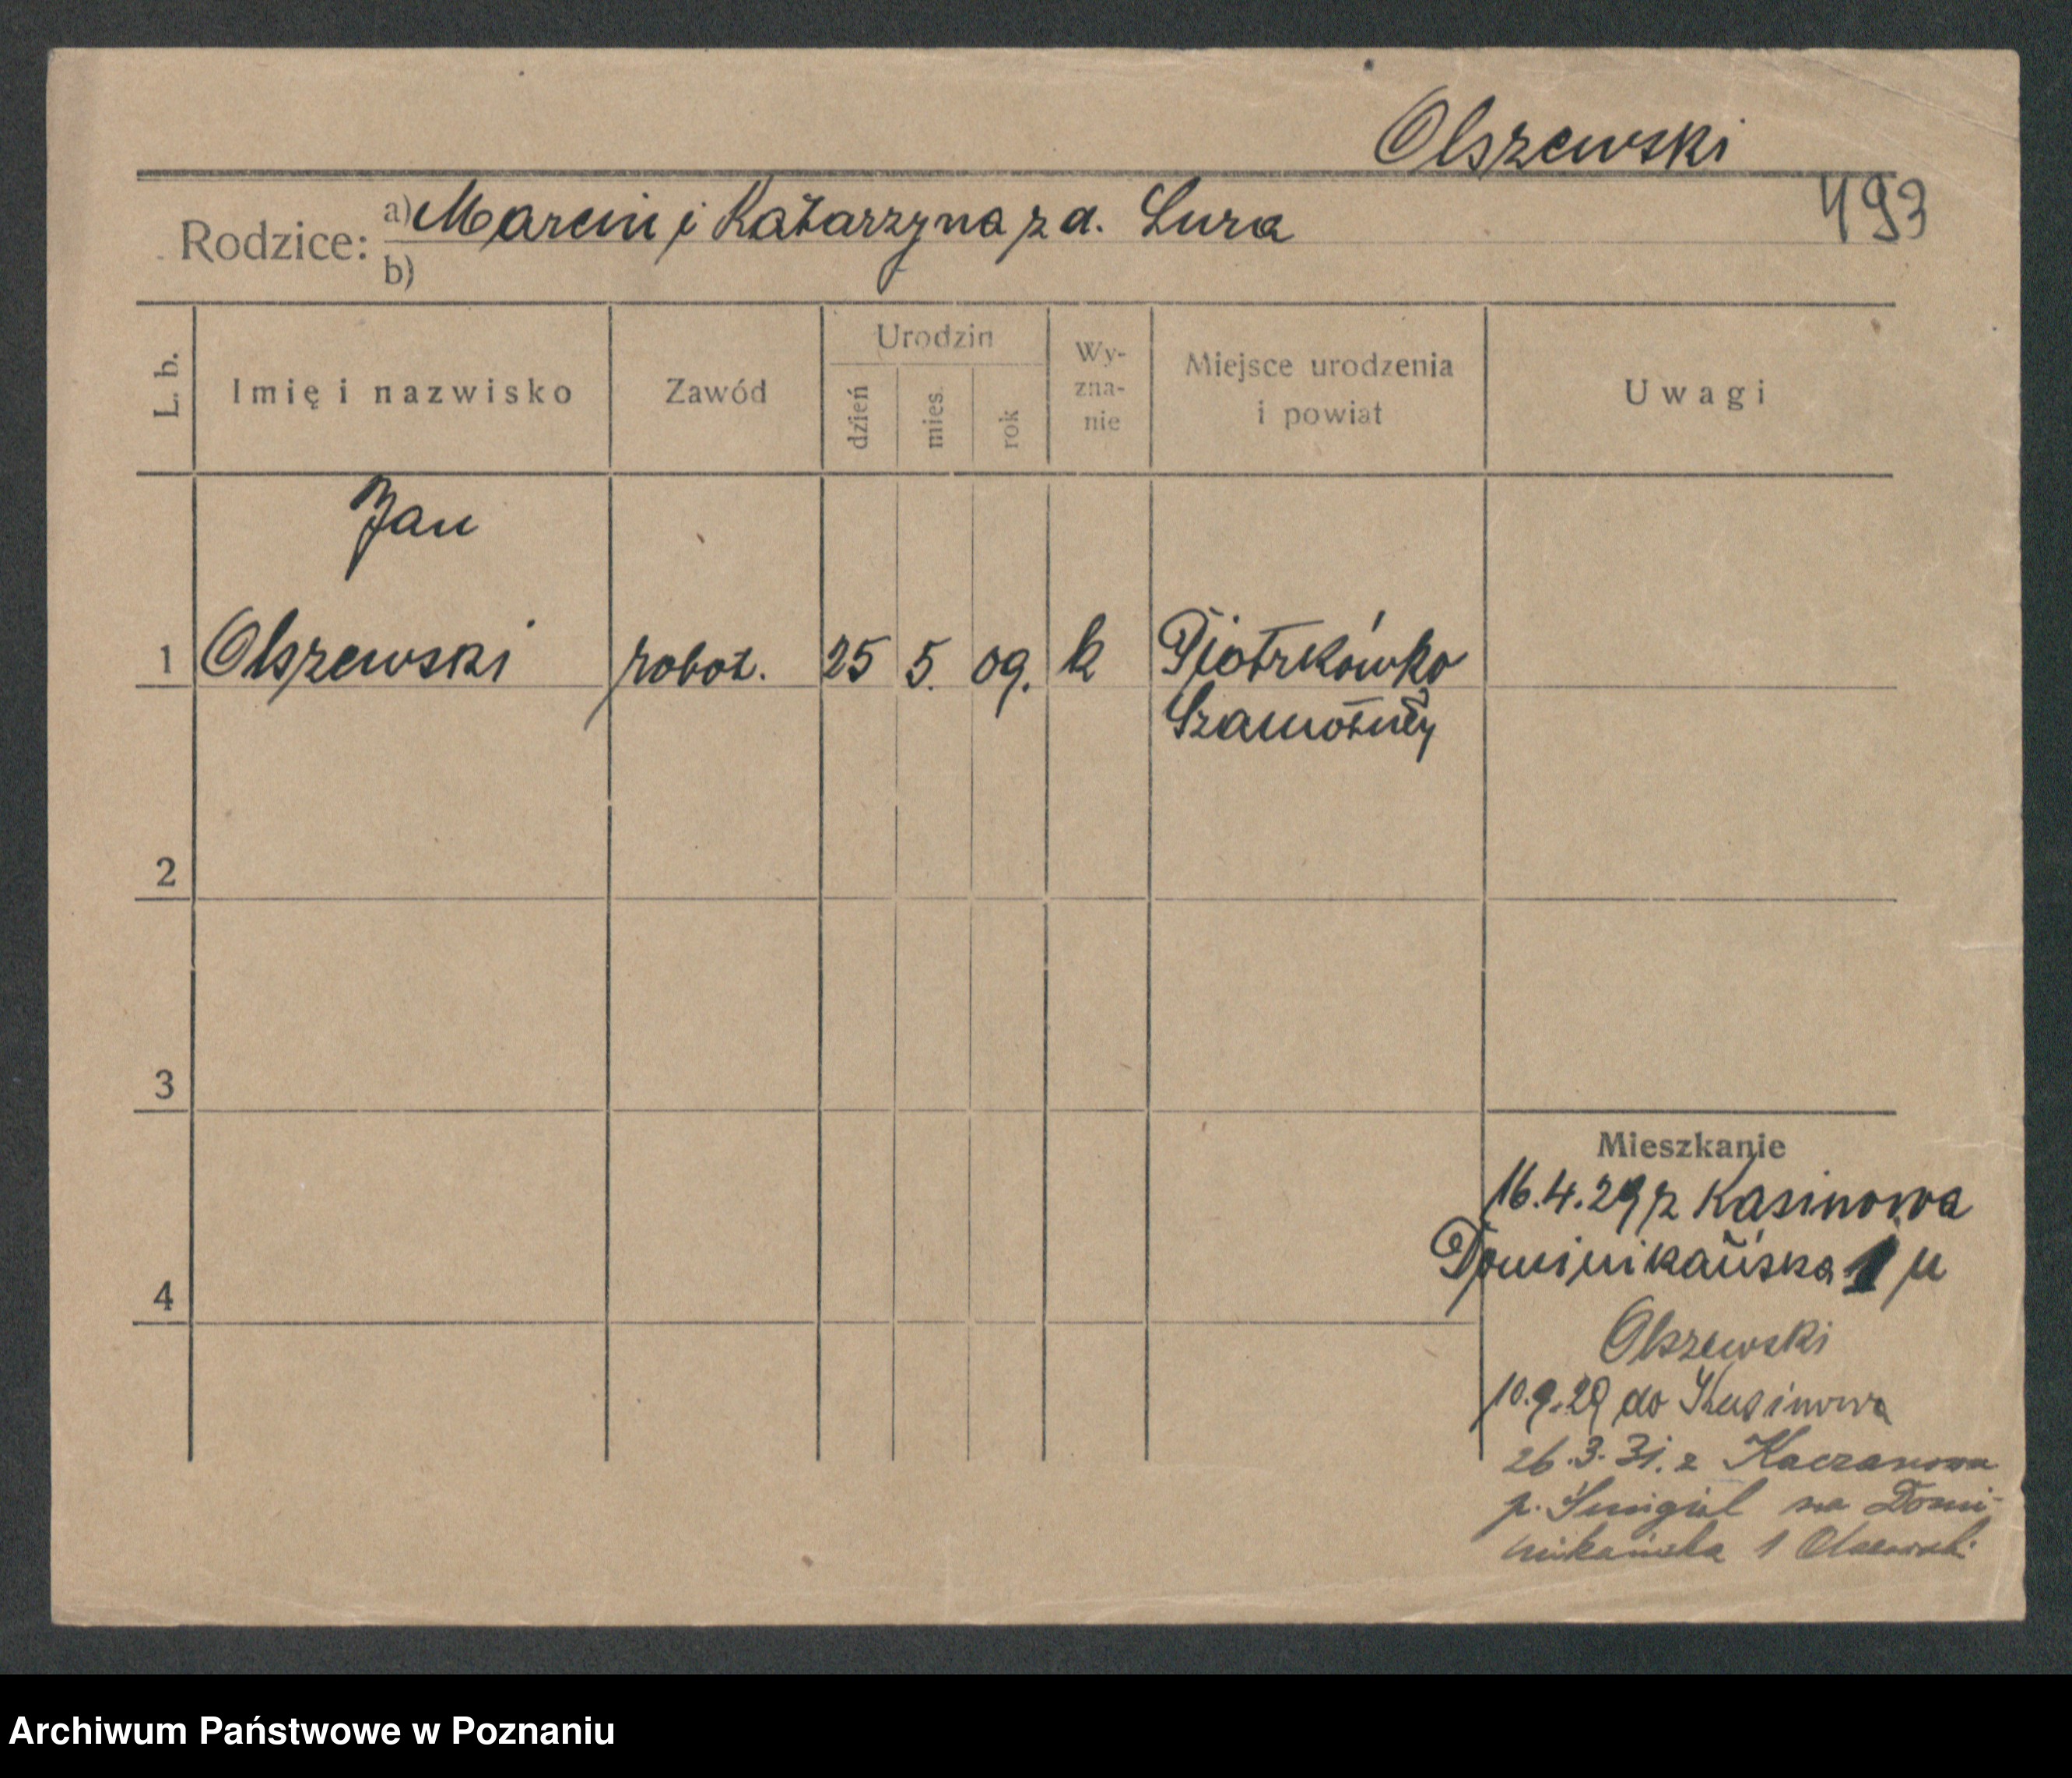 Olszewski
493
Rodzice: a) Marcin i Katarzyna z d. Lura
b)
L. b. Imię i nazwisko Zawód Urodzin dzień mies. rok Wy-zna-nie Miejsce urodzenia i powiat Uwagi
Jan
1 Olszewski robot. 25 5. 09. k Piotrkówko
Szamotuły
2
3
Mieszkanie
16.4.29 z Kasinowa
Dominikańska 1 u
4
Olszewski
10.9.29 do Kasinowa
26.3.31. z Kaczanowa
p. Śmigiel na Domi-
nikańska 1 Olszewski
Archiwum Państwowe w Poznaniu